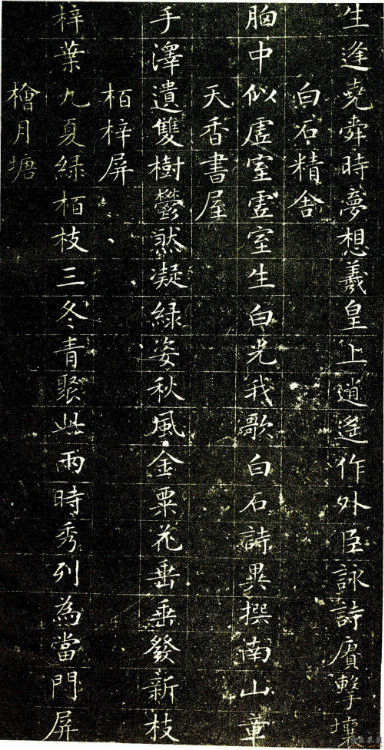 生逢堯舜時夢想羲皇上逍遥作外臣詠詩賡擊壤
白石精舍
胸中似虛室虛室生白光我歌白石詩異撰南山章
天香書屋
手澤遺雙樹鬱然凝綠姿秋風金粟花垂垂發新枝
栢梓屏
梓葉九夏綠栢枝三冬青聚此兩時秀列為當門屏
檜月塘